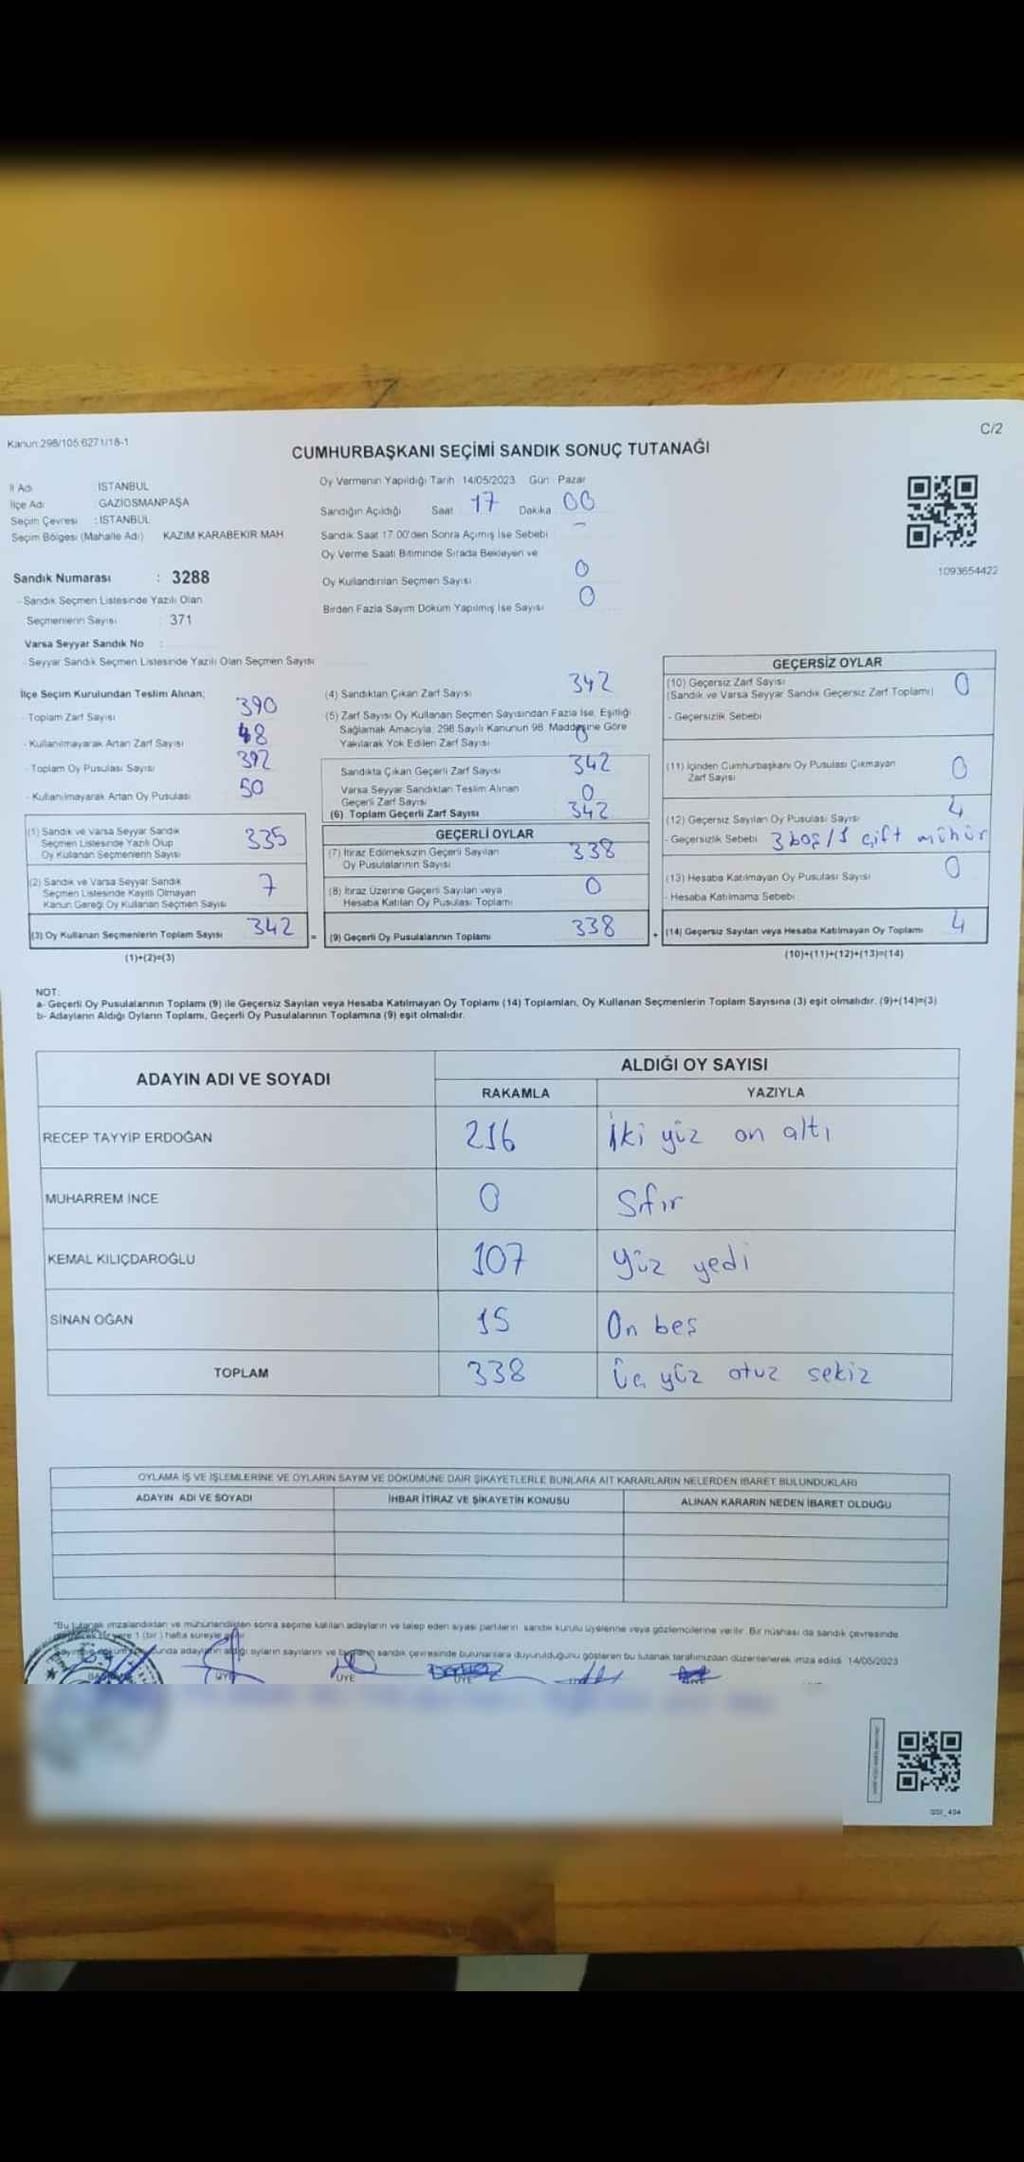 Kanun:298/105 6271/18-1
C/2
CUMHURBAŞKANI SEÇİMİ SANDIK SONUÇ TUTANAĞI
İl Adı İSTANBUL
İlçe Adı GAZİOSMANPAŞA
Seçim Çevresi : İSTANBUL
Seçim Bölgesi (Mahalle Adı) KAZIM KARABEKİR MAH
Sandık Numarası : 3288
- Sandık Seçmen Listesinde Yazılı Olan
Seçmenlerin Sayısı : 371
Varsa Seyyar Sandık No :
- Seyyar Sandık Seçmen Listesinde Yazılı Olan Seçmen Sayısı
Oy Vermenin Yapıldığı Tarih 14/05/2023 Gün Pazar
Sandığın Açıldığı Saat 17 Dakika 00
Sandık Saat 17.00'den Sonra Açımış İse Sebebi -
Oy Verme Saati Bitiminde Sırada Bekleyen ve
Oy Kullandırılan Seçmen Sayısı 0
Birden Fazla Sayım Döküm Yapılmış İse Sayısı 0
1093654422
İlçe Seçim Kurulundan Teslim Alınan;
- Toplam Zarf Sayısı 390
- Kullanılmayarak Artan Zarf Sayısı 48
- Toplam Oy Pusulası Sayısı 392
- Kullanılmayarak Artan Oy Pusulası 50
(1) Sandık ve Varsa Seyyar Sandık
Seçmen Listesinde Yazılı Olup
Oy Kullanan Seçmenlerin Sayısı 335
(2) Sandık ve Varsa Seyyar Sandık
Seçmen Listesinde Kayıtlı Olmayan
Kanun Gereği Oy Kullanan Seçmen Sayısı 7
(3) Oy Kullanan Seçmenlerin Toplam Sayısı 342
(1)+(2)=(3)
(4) Sandıktan Çıkan Zarf Sayısı 342
(5) Zarf Sayısı Oy Kullanan Seçmen Sayısından Fazla İse, Eşitliği
Sağlamak Amacıyla, 298 Sayılı Kanunun 98. Maddesine Göre
Yakılarak Yok Edilen Zarf Sayısı 0
Sandıkta Çıkan Geçerli Zarf Sayısı 342
Varsa Seyyar Sandıktan Teslim Alınan
Geçerli Zarf Sayısı 0
(6) Toplam Geçerli Zarf Sayısı 342
GEÇERLİ OYLAR
(7) İtiraz Edilmeksizin Geçerli Sayılan
Oy Pusulalarının Sayısı 338
(8) İtiraz Üzerine Geçerli Sayılan veya
Hesaba Katılan Oy Pusulası Toplamı 0
= (9) Geçerli Oy Pusulalarının Toplamı 338
GEÇERSİZ OYLAR
(10) Geçersiz Zarf Sayısı
(Sandık ve Varsa Seyyar Sandık Geçersiz Zarf Toplamı) 0
- Geçersizlik Sebebi
(11) İçinden Cumhurbaşkanı Oy Pusulası Çıkmayan
Zarf Sayısı 0
(12) Geçersiz Sayılan Oy Pusulası Sayısı 4
- Geçersizlik Sebebi 3 boş/1 çift mühür
(13) Hesaba Katılmayan Oy Pusulası Sayısı 0
- Hesaba Katılmama Sebebi
+ (14) Geçersiz Sayılan veya Hesaba Katılmayan Oy Toplamı 4
(10)+(11)+(12)+(13)=(14)
NOT:
a- Geçerli Oy Pusulalarının Toplamı (9) ile Geçersiz Sayılan veya Hesaba Katılmayan Oy Toplamı (14) Toplamları, Oy Kullanan Seçmenlerin Toplam Sayısına (3) eşit olmalıdır. (9)+(14)=(3)
b- Adayların Aldığı Oyların Toplamı, Geçerli Oy Pusulalarının Toplamına (9) eşit olmalıdır.
ADAYIN ADI VE SOYADI
ALDIĞI OY SAYISI
RAKAMLA YAZIYLA
RECEP TAYYİP ERDOĞAN 216 İki yüz on altı
MUHARREM İNCE 0 Sıfır
KEMAL KILIÇDAROĞLU 107 Yüz yedi
SİNAN OĞAN 15 On beş
TOPLAM 338 Üç yüz otuz sekiz
OYLAMA İŞ VE İŞLEMLERİNE VE OYLARIN SAYIM VE DÖKÜMÜNE DAİR ŞİKAYETLERLE BUNLARA AİT KARARLARIN NELERDEN İBARET BULUNDUKLARI
ADAYIN ADI VE SOYADI İHBAR İTİRAZ VE ŞİKAYETİN KONUSU ALINAN KARARIN NEDEN İBARET OLDUĞU
"Bu tutanak imzalandıktan ve mühürlendikten sonra seçime katılan adayların ve talep eden siyasi partilerin sandık kurulu üyelerine veya gözlemcilerine verilir. Bir nüshası da sandık çevresinde
1 (bir) hafta süreyle
adayların aldığı oyların sayılarını ve sandık çevresinde bulunanlara duyurulduğunu gösteren bu tutanak tarafımızdan düzenlenerek imza edildi. 14/05/2023
ÜYE ÜYE ÜYE